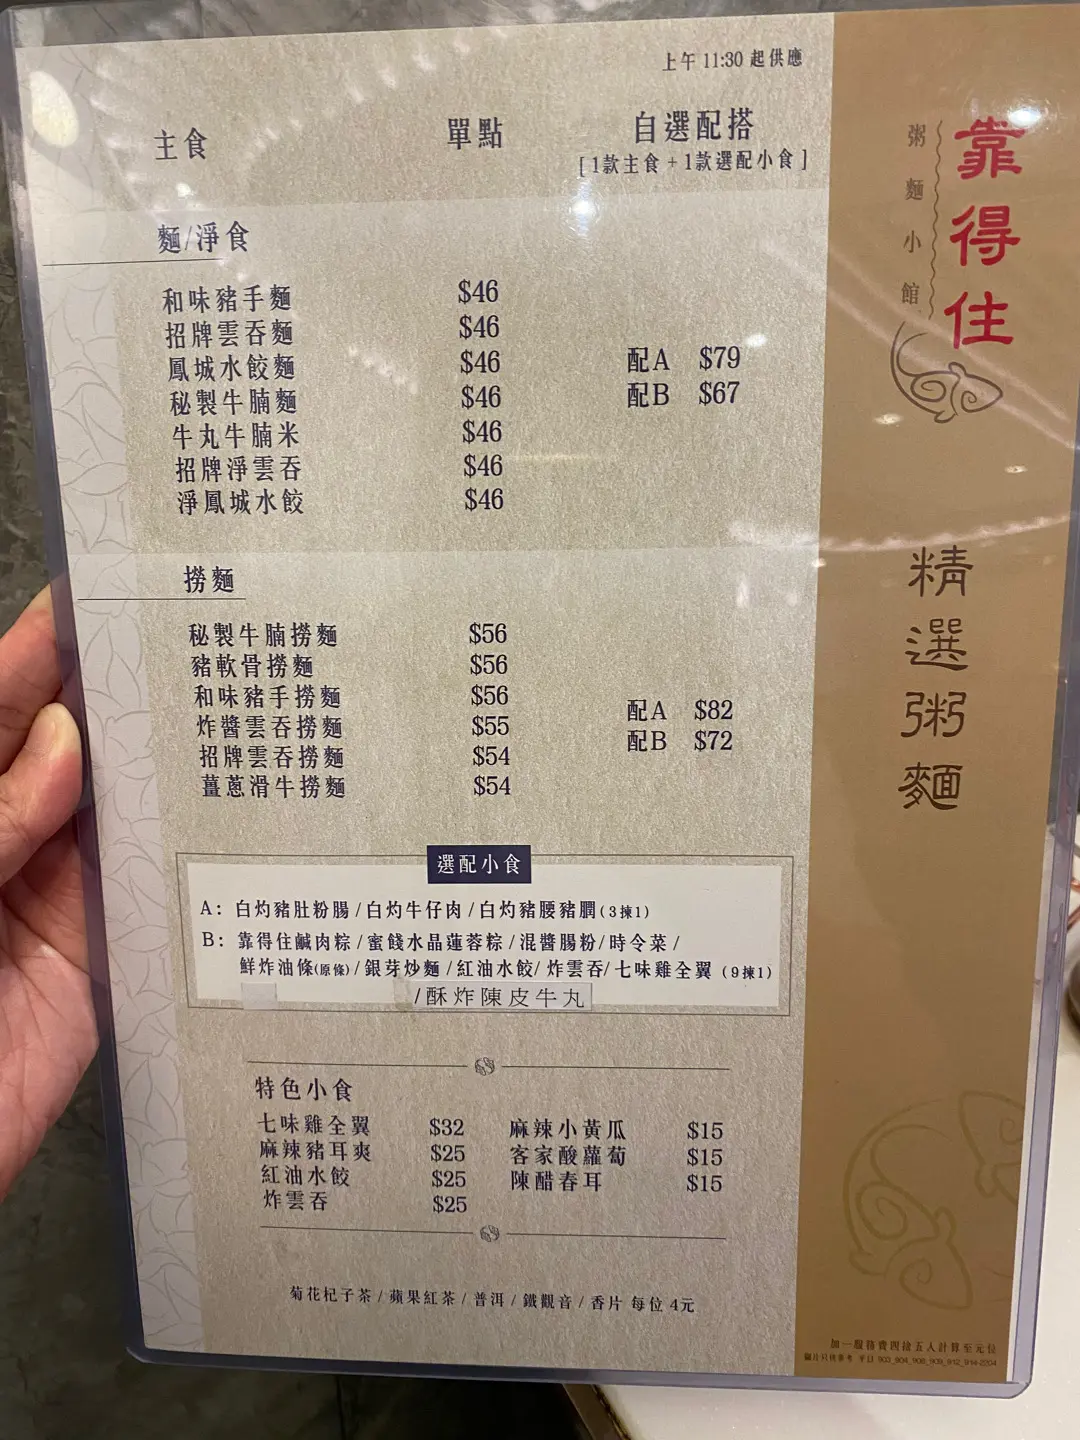 上午 11:30 起供應
主食 單點 自選配搭
[ 1款主食 + 1款選配小食 ]
麵/淨食
和味豬手麵 $46
招牌雲吞麵 $46
鳳城水餃麵 $46
秘製牛腩麵 $46
牛丸牛腩米 $46
招牌淨雲吞 $46
淨鳳城水餃 $46
配A $79
配B $67
撈麵
秘製牛腩撈麵 $56
豬軟骨撈麵 $56
和味豬手撈麵 $56
炸醬雲吞撈麵 $55
招牌雲吞撈麵 $54
薑蔥滑牛撈麵 $54
配A $82
配B $72
選配小食
A: 白灼豬肚粉腸 / 白灼牛仔肉 / 白灼豬腰豬膶 (3揀1)
B: 靠得住鹹肉粽 / 蜜餞水晶蓮蓉粽 / 混醬腸粉 / 時令菜 /
鮮炸油條(原條) / 銀芽炒麵 / 紅油水餃 / 炸雲吞 / 七味雞全翼 (9揀1)
/酥炸陳皮牛丸
特色小食
七味雞全翼 $32
麻辣豬耳爽 $25
紅油水餃 $25
炸雲吞 $25
麻辣小黃瓜 $15
客家酸蘿蔔 $15
陳醋舂耳 $15
菊花杞子茶 / 蘋果紅茶 / 普洱 / 鐵觀音 / 香片 每位 4元
靠得住
粥麵小館
精選粥麵
加一服務費四捨五入計算至元位